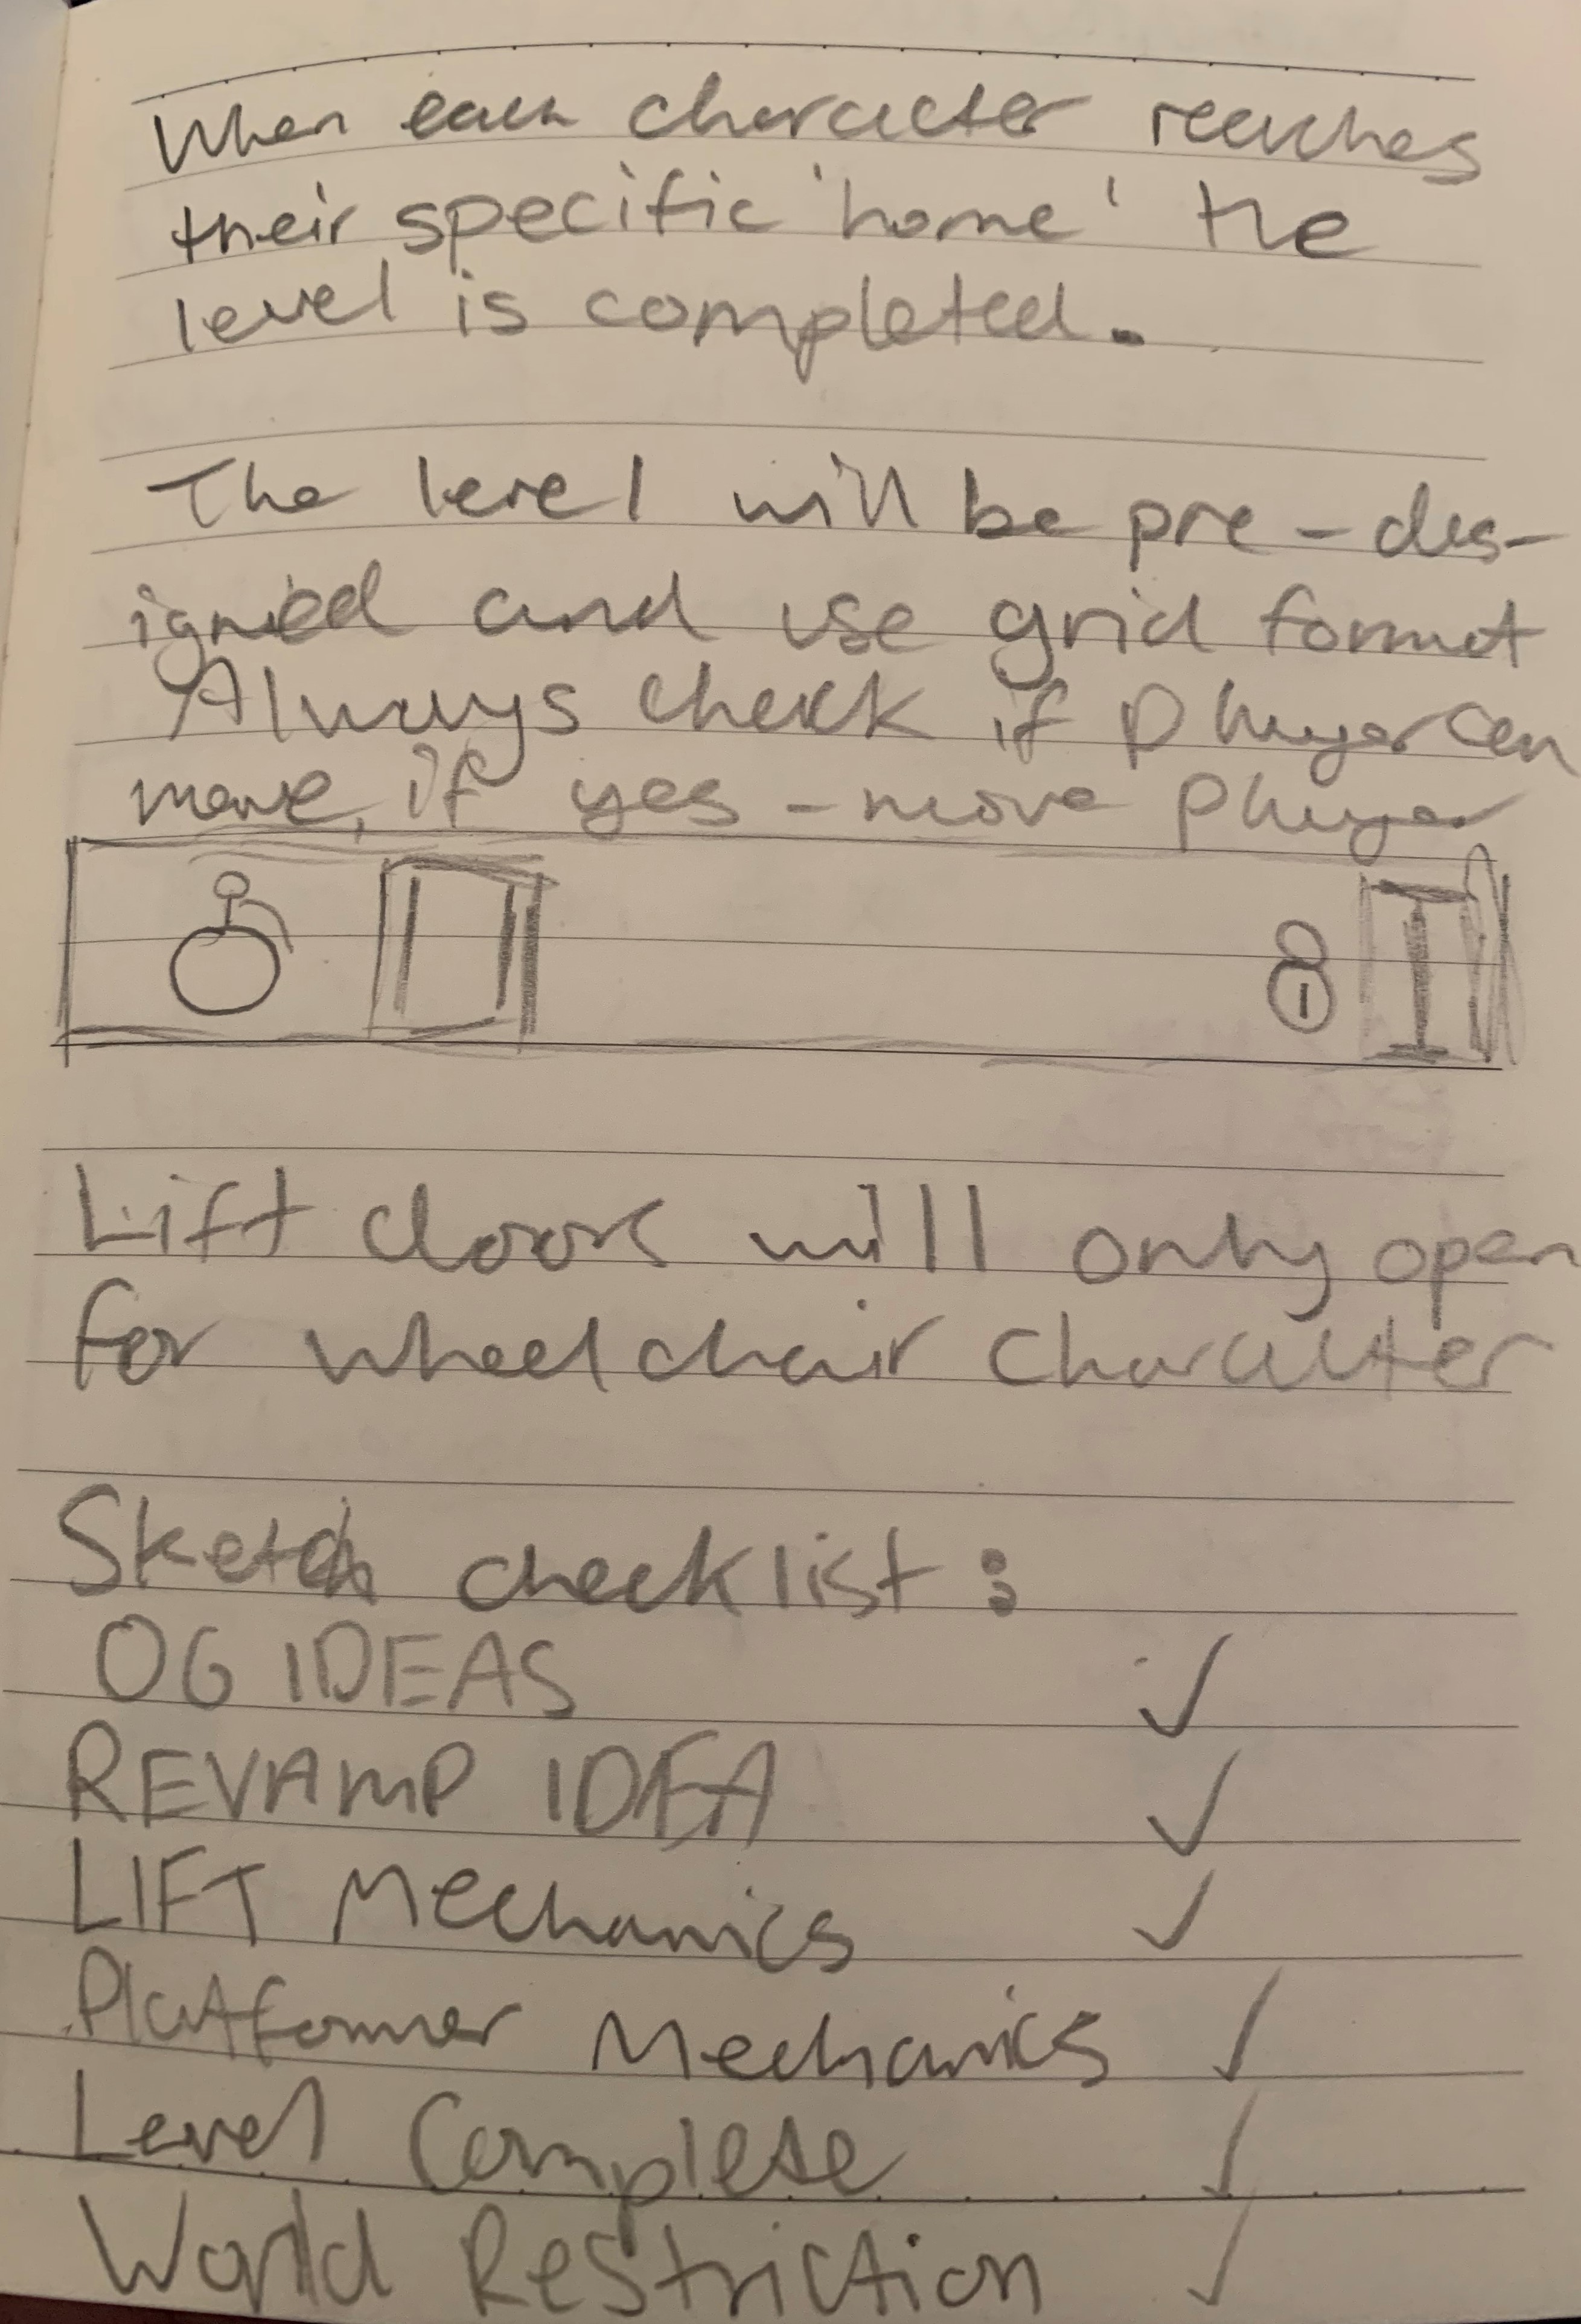 When each character reaches
their specific 'home' the
level is completed.
The level will be pre-des-
igned and use grid format
Always check if player can
move, if yes - move player
Lift doors will only open
for wheelchair character
Sketch checklist:
OG IDEAS ✓
REVAMP IDEA ✓
LIFT Mechanics ✓
Platformer Mechanics ✓
Level Complete ✓
World Restriction ✓